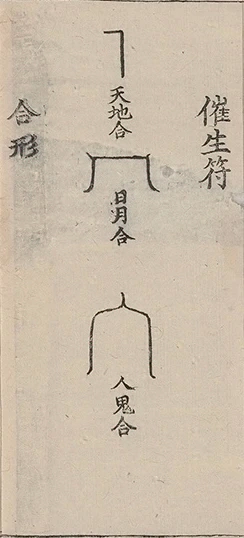 催生符
天地合
日月合
人鬼合
合形